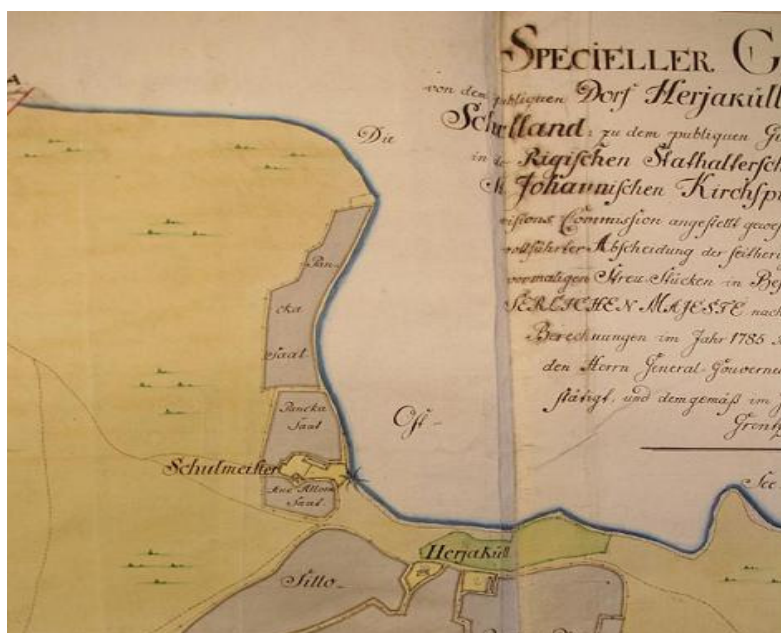 SPECIELLER G
von dem publiquen Dorf Herjaküll
Schulland: zu dem publiquen Gu
in der Rigischen Stathaltersch
St Johannischen Kirchspi
visions Commission angestellt gewes
vollführter Abscheidung der seitheri
vormaligen Streu-Stücken in Bes
SERLICHEN MAJESTE nach
Berechnungen im Jahr 1785
den Herrn General-Gouverne
stätigt, und demgemäß im
Grentz
Die
Ost-
See
Pan-
cka
Saat
Pancka
Saat
Schulmeister
Saat
Herjaküll
Sillo-